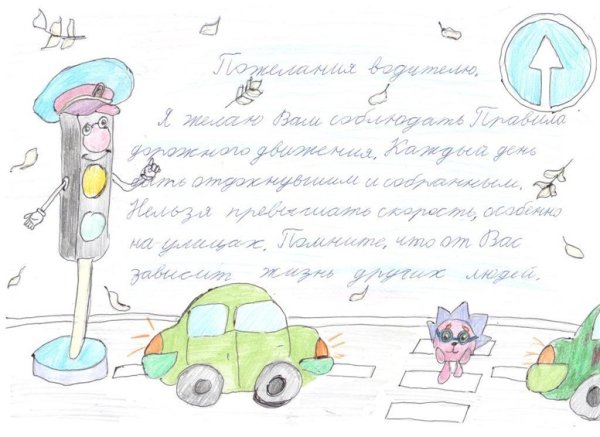 Пожелания водителю.
Я желаю Вам соблюдать Правила
дорожного движения. Каждый день
быть отдохнувшим и собранным.
Нельзя превышать скорость, особенно
на улицах. Помните, что от Вас
зависит жизнь других людей.